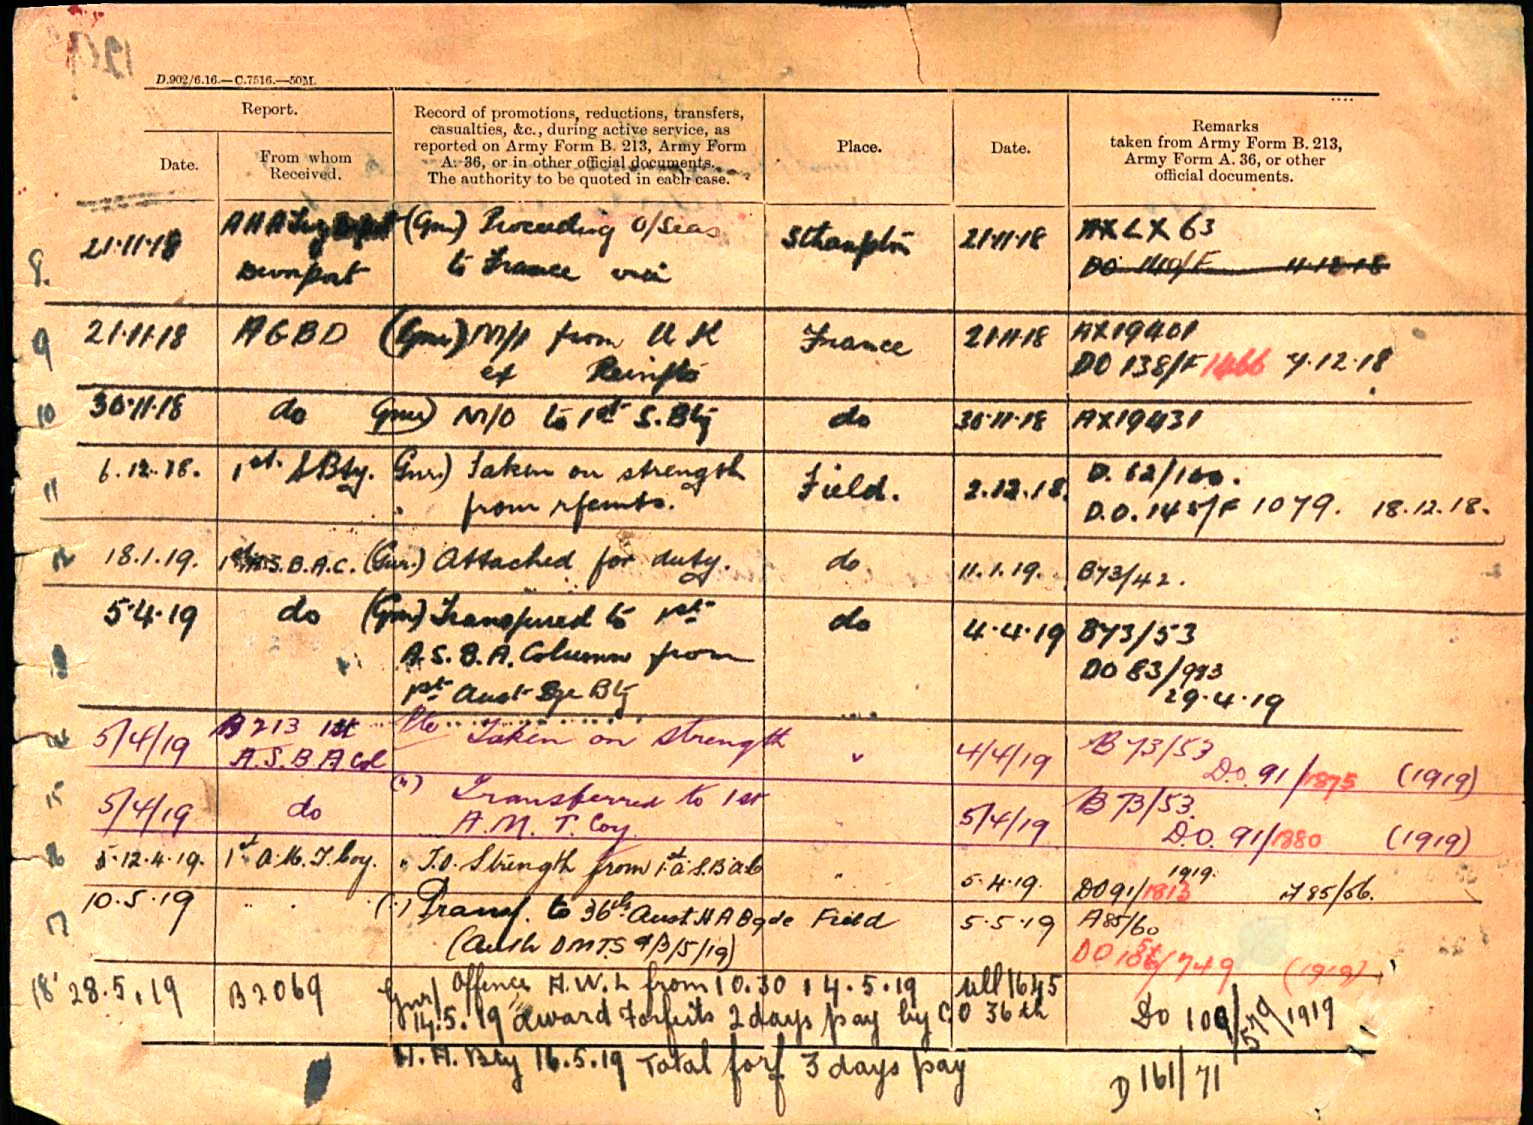 D.902/6.16.—C.7516.—50M.
Report.
Date.
From whom
Received.
Record of promotions, reductions, transfers,
casualties, &c., during active service, as
reported on Army Form B. 213, Army Form
A. 36, or in other official documents.
The authority to be quoted in each case.
Place.
Date.
Remarks
taken from Army Form B. 213,
Army Form A. 36, or other
official documents.
8. 21.11.18 AHA (Gnr) Proceeding O/Seas Sthampton 21.11.18 AXLX 63
Devonport to France via DO 11.12.18
9 21.11.18 AGBD (Gnr) M/I from U K France 21.11.18 AX19401
ex Reinfts DO 138/F 1466 7.12.18
10 30.11.18 do Gnr) M/O to 1st S. Bty do 30.11.18 AX19431
11 6.12.18. 1st. S Bty. Gnr) Taken on strength Field. 2.12.18. D. 62/100.
from rfemts. D.O. 145/F 1079. 18.12.18.
18.1.19. 1st A.S.B.A.C. (Gnr.) Attached for duty. do 11.1.19. B73/42.
5.4.19 do (Gnr) Transferred to 1st do 4.4.19 B73/53
A.S.B.A. Column from DO 83/993
1st Aust Sge Bty 29.4.19
5/4/19 B213 1st Taken on strength " 4/4/19 B73/53
A.S.B.A Col D.O. 91/1875 (1919)
15 5/4/19 do (") Transferred to 1st 5/4/19 B73/53.
A.M.T. Coy. D.O. 91/1880 (1919)
12.4.19. 1st A.M.T. Coy. " T.O. Strength from 1st A.S.B.A.C " 5.4.19. DO91/1813 1919. A85/56.
10.5.19 " " (") Transf. to 36th Aust H A Bgde Field 5.5.19 A85/60
(Auth DMTS d/3/5/19) DO 749 (1919)
18 28.5.19 B2069 Gnr/ Offence A.W.L from 10.30 14.5.19 till 1645
14.5.19 award Forfeits 2 days pay by CO 36th DO 109/579/1919
H. A. Bty 16.5.19 Total forf 3 days pay
D 161/71